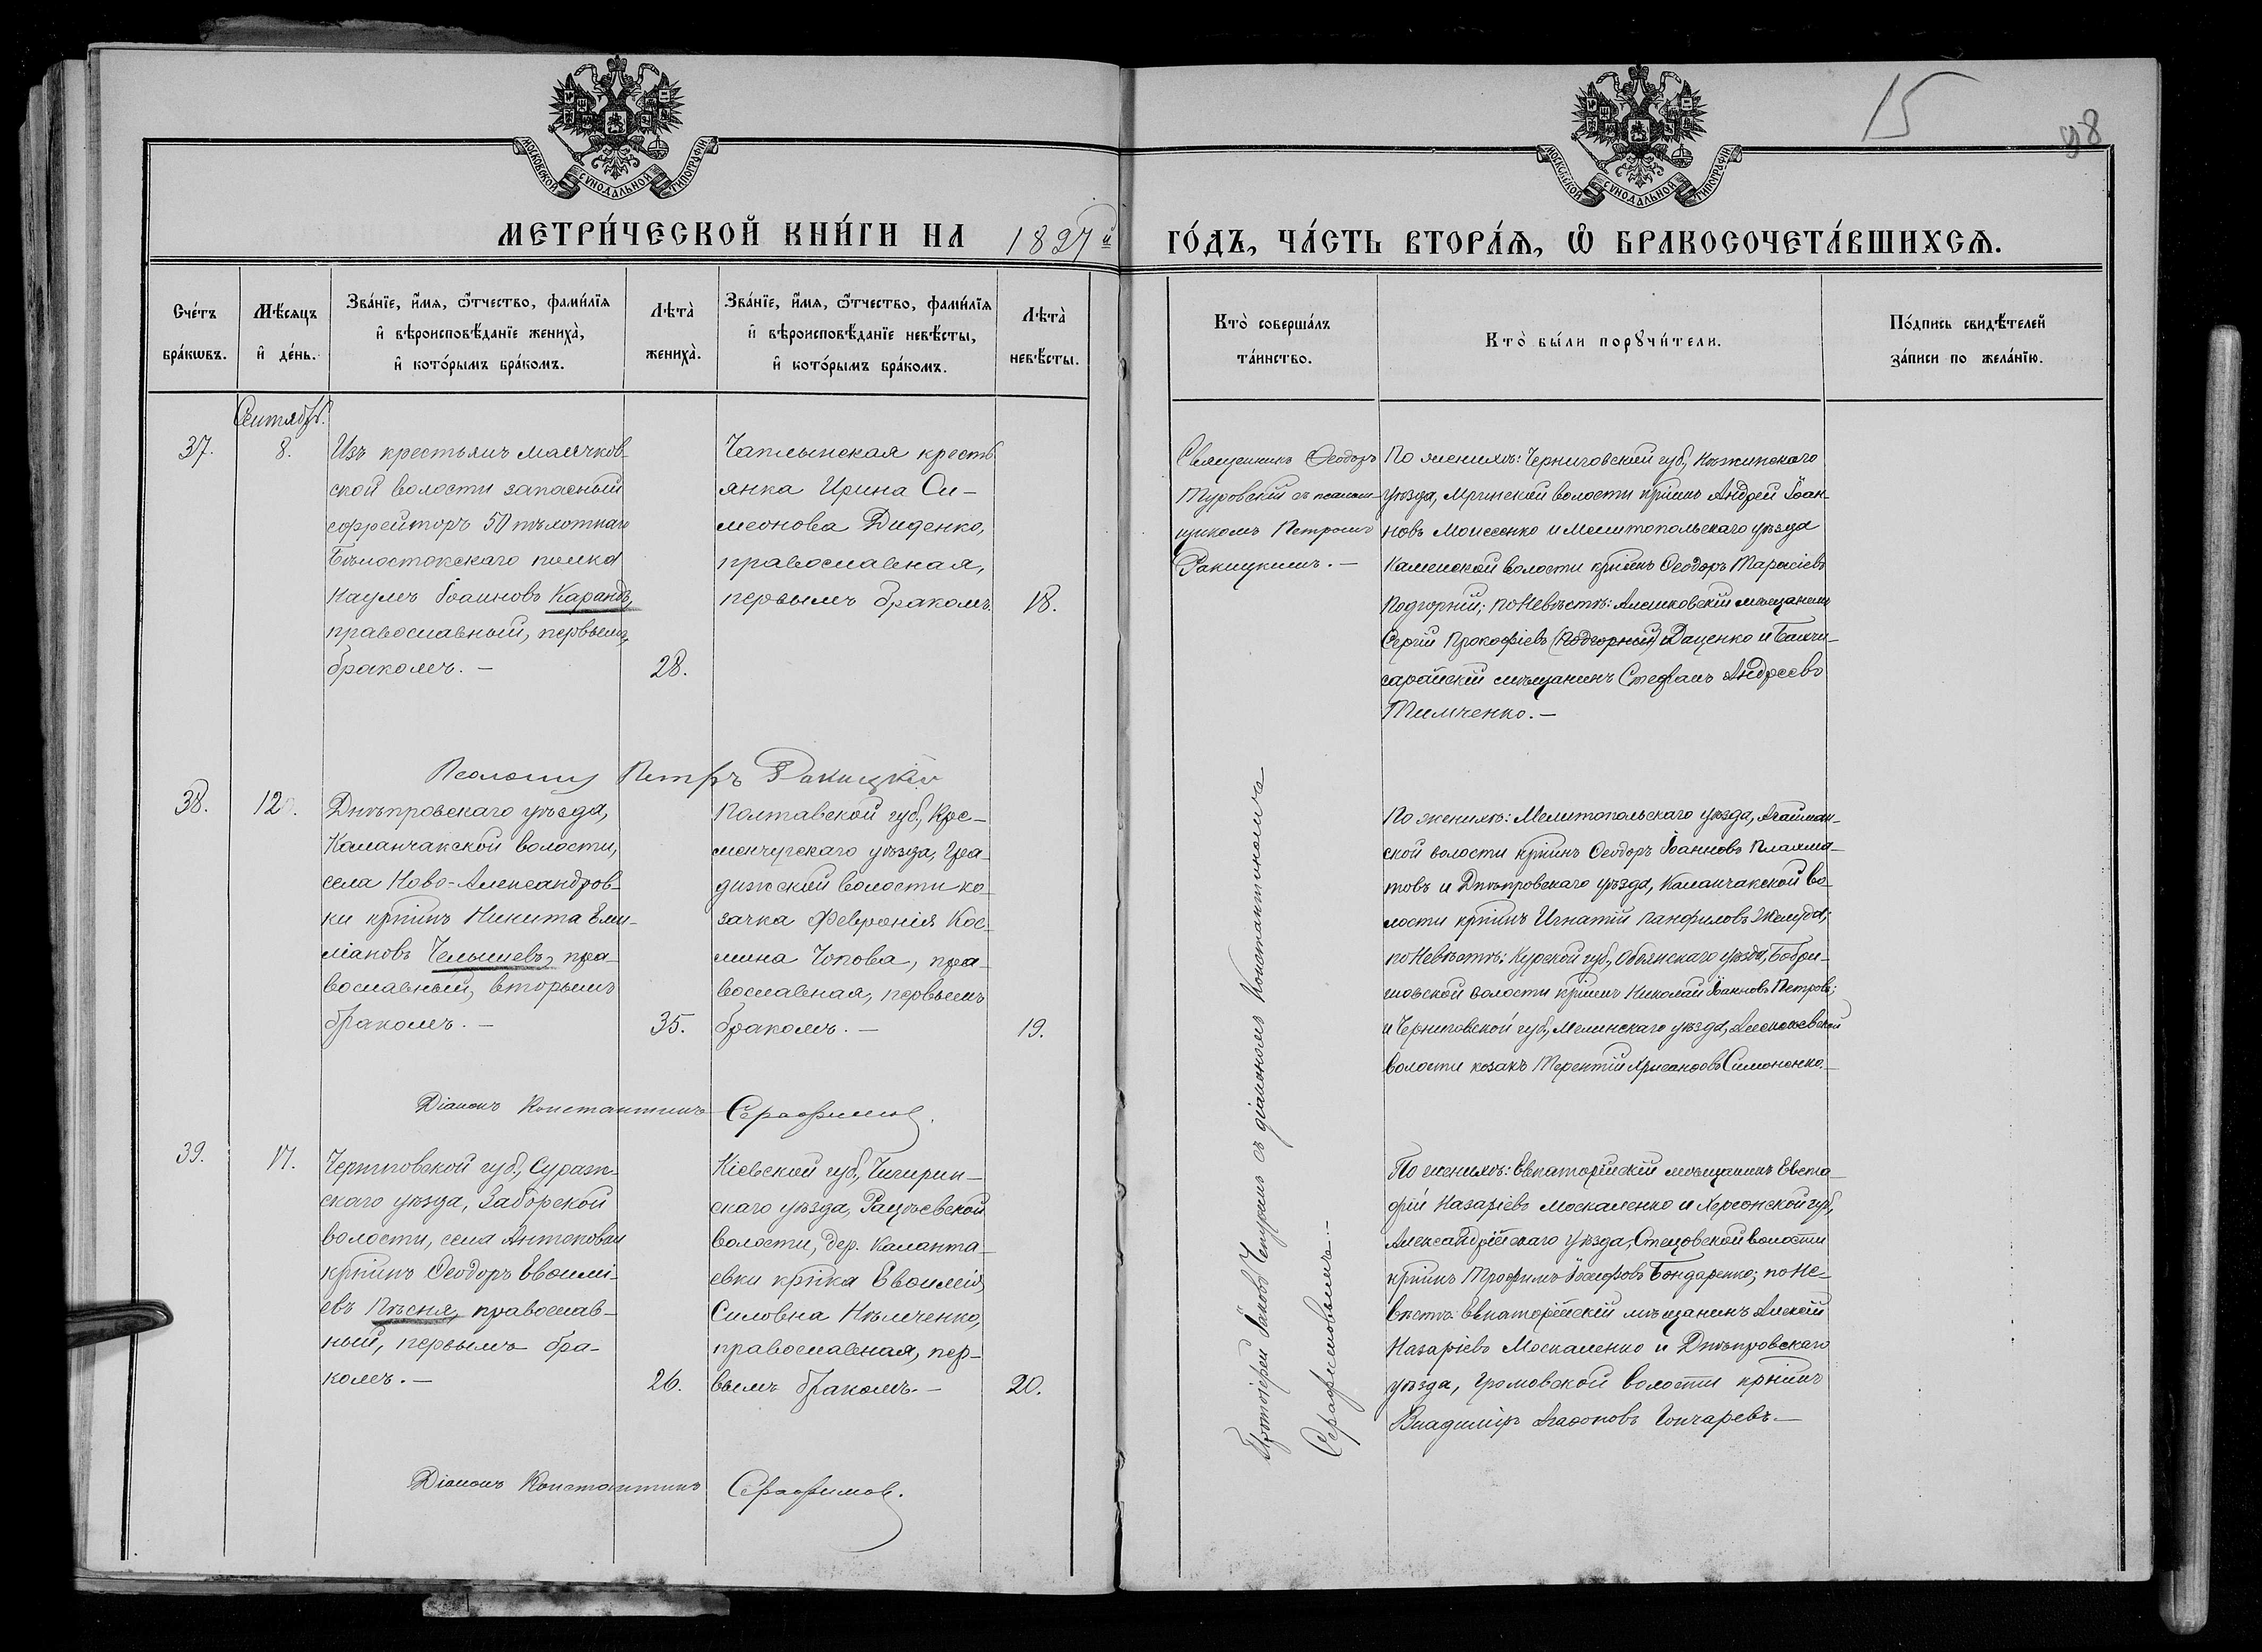 15
98
МОСКОВСКОЙ СУНОДАЛЬНОЙ ТИПОГРАФІИ
МОСКОВСКОЙ СУНОДАЛЬНОЙ ТИПОГРАФІИ
МЕТРИ́ЧЕСКОЙ КНИ́ГИ НА 1897й ГО́ДЪ, ЧА́СТЬ ВТОРА́Ѧ, Ѡ БРАКОСОЧЕТА́ВШИХСѦ.
Сче́тъ
бра́кѡвъ.
Мѣ́сяцъ
и҆ де́нь.
Зва́нїе, и҆́мѧ, ѻ҆́тчество, фами́лїѧ
и҆ вѣроисповѣ́данїе жениха̀,
и҆ кото́рымъ бра́комъ.
Лѣ́та̀
жениха̀.
Зва́нїе, и҆́мѧ, ѻ҆́тчество, фами́лїѧ
и҆ вѣроисповѣ́данїе невѣ́сты,
и҆ кото́рымъ бра́комъ.
Лѣ́та̀
невѣ́сты.
Кто̀ соверша́лъ
та́инство.
Кто̀ бы́ли порꙋчи́тели.
По́дпись свидѣ́телей
за́писи по жела́нїю.
Сентябрь.
37.
8.
Изъ крестьянъ Маячков-
ской волости запасный
ефрейторъ 50 пѣхотнаго
Бѣлостокскаго полка
Наумъ Іоанновъ Карандъ,
православный, первымъ
бракомъ. —
28.
Чаплынская кресть
янка Ирина Си-
меонова Диденко,
православная,
первымъ бракомъ.
18.
Священникъ Ѳеодоръ
Туровскій съ псалом-
щикомъ Петромъ
Ракицкимъ. —
По женихѣ: Черниговской губ., Нѣжинскаго
уѣзда, Мринской волости крнинъ Андрей Іоан-
новъ Моисеенко и Мелитопольскаго уѣзда
Каменской волости крнинъ Ѳеодоръ Тарасіевъ
Подгорный; по Невѣстѣ: Алешковскій мѣщанинъ
Сергій Прокофіевъ (Подгорный) Даценко и Бахчи-
сарайскій мѣщанинъ Стефанъ Андреевъ
Тимченко. —
Псаломщ Петръ Ракицкій
38.
12.
Днѣпровскаго уѣзда,
Каланчакской волости,
села Ново-Александров-
ки крнинъ Никита Еми-
ліановъ Челышевъ, пра-
вославный, вторымъ
бракомъ. —
35.
Полтавской губ., Кре-
менчугскаго уѣзда, Гра-
дижской волости ко-
зачка Февронія Кос-
мина Чопова, пра-
вославная, первымъ
бракомъ. —
19.
Протоіерей Іаковъ Чепуринъ съ діакономъ Константиномъ
Серафимовымъ. —
По женихѣ: Мелитопольскаго уѣзда, Агайман-
ской волости крнинъ Ѳеодоръ Іоанновъ Плахма-
товъ и Днѣпровскаго уѣзда, Каланчакской во-
лости крнинъ Игнатій Панфиловъ Желуда;
по Невѣстѣ: Курской губ., Обоянскаго уѣзда, Бобры-
шовской волости крнинъ Николай Іоанновъ Петровъ;
и Черниговской губ., Мглинскаго уѣзда,
волости козакъ Терентій Хрисанѳовъ Симоненко. —
Діаконъ Константинъ Серафимов.
39.
17.
Черниговской губ., Сураж-
скаго уѣзда, Заборской
волости, села Антоновки
крнинъ Ѳеодоръ Евѳимі-
евъ Пѣсня, православ-
ный, первымъ бра-
комъ. —
26.
Кіевской губ., Чигирин-
скаго уѣзда, Рацѣевской
волости, дер. Каланта-
евки крнка Евѳимія
Силовна Нѣмченко,
православная, пер-
вымъ бракомъ. —
20.
По женихѣ: Евпаторійскій мѣщанинъ Евста-
фій Назаріевъ Москаленко и Херсонской губ.,
Александрійскаго уѣзда, Стецовской волости
крнинъ Трофимъ Іосифовъ Бондаренко; по Не-
вѣстѣ: Евпаторійскій мѣщанинъ Алексій
Назаріевъ Москаленко и Днѣпровскаго
уѣзда, Громовской волости крнинъ
Владиміръ Агаѳоновъ Гончаревъ. —
Діаконъ Константинъ Серафимов.